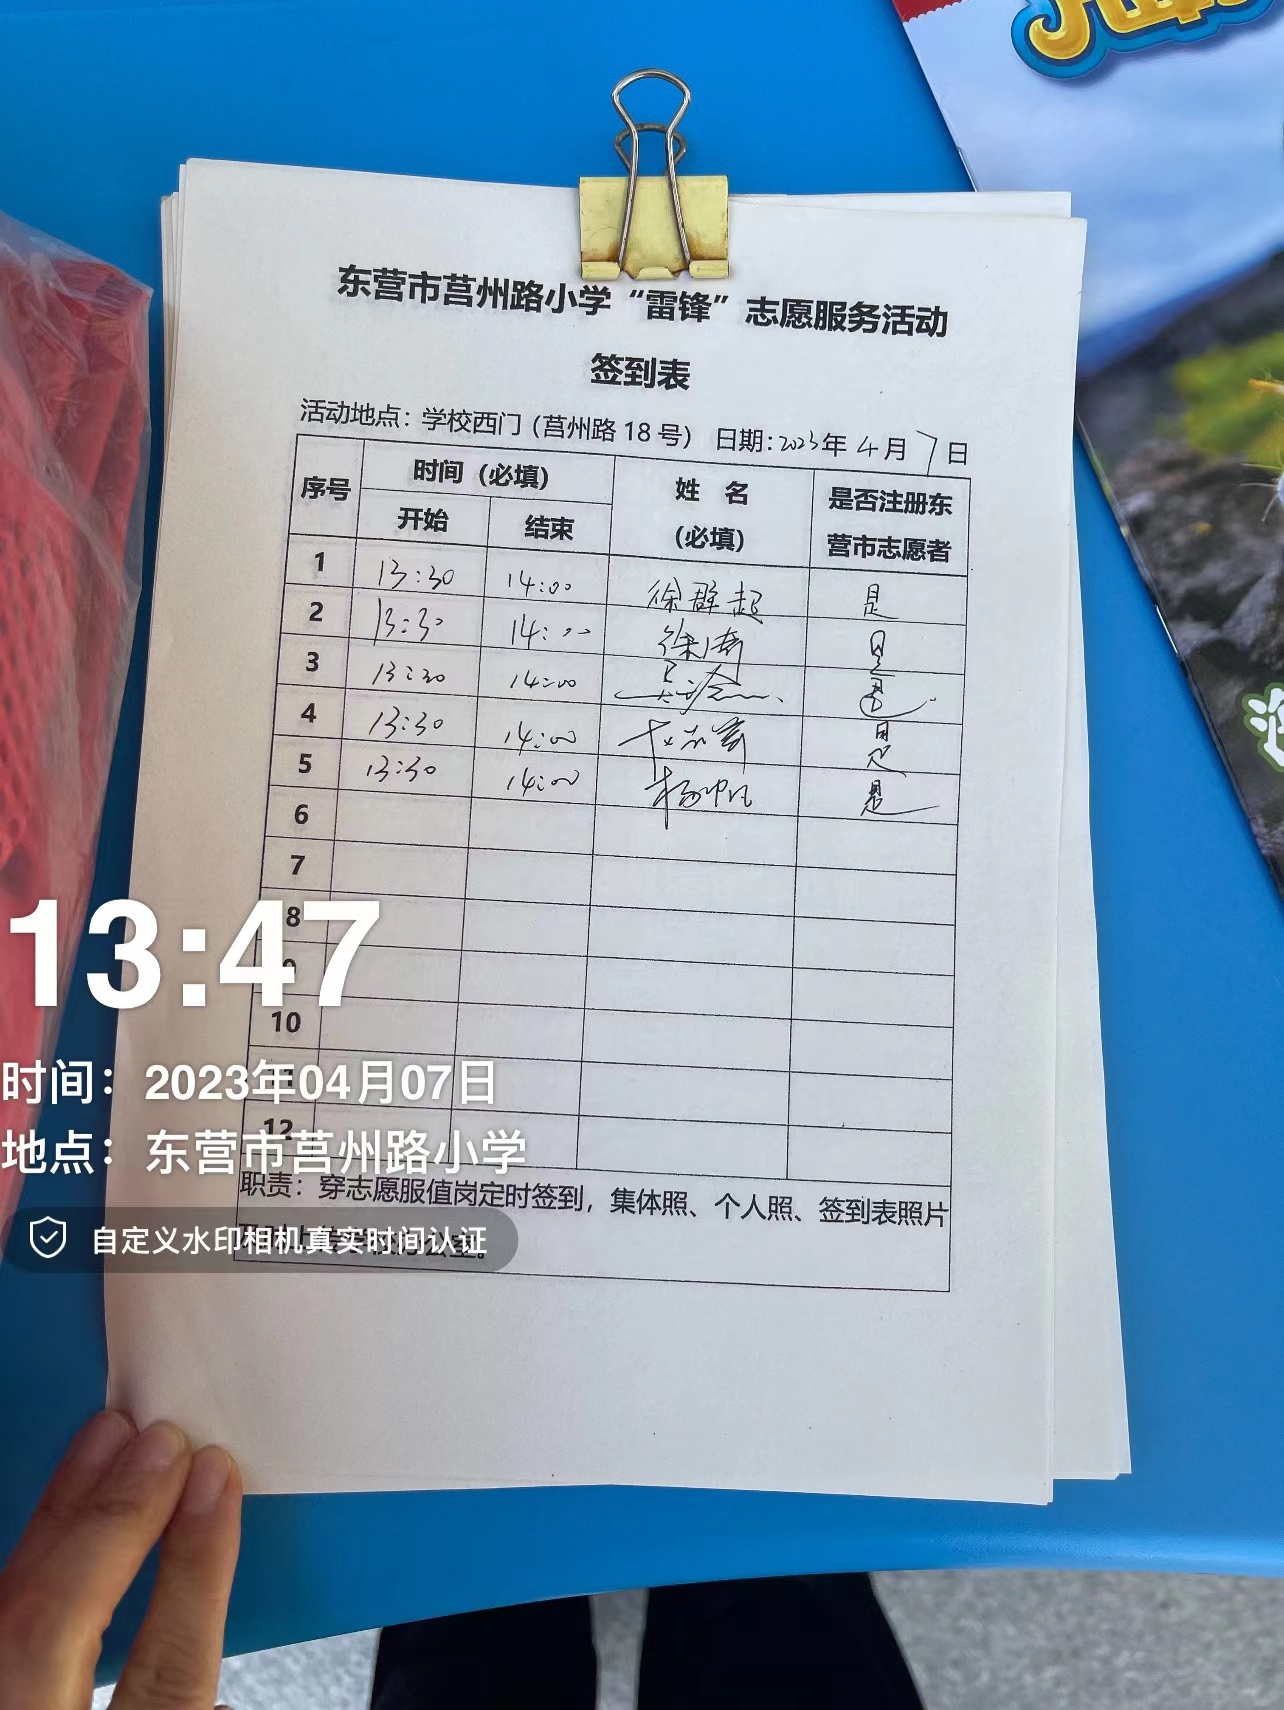 东营市莒州路小学“雷锋”志愿服务活动
签到表
活动地点：学校西门（莒州路 18 号） 日期：2023年 4月 7日
序号 时间（必填） 姓 名 （必填） 是否注册东营市志愿者
开始 结束
1 13:30 14:00 徐群超 是
2 13:30 14:00 徐 是
3 13:30 14:00 是
4 13:30 14:00 是
5 13:30 14:00 杨帅凡 是
6
7
8
9
10
12
职责：穿志愿服值岗定时签到，集体照、个人照、签到表照片
13:47
时间：2023年04月07日
地点：东营市莒州路小学
自定义水印相机真实时间认证